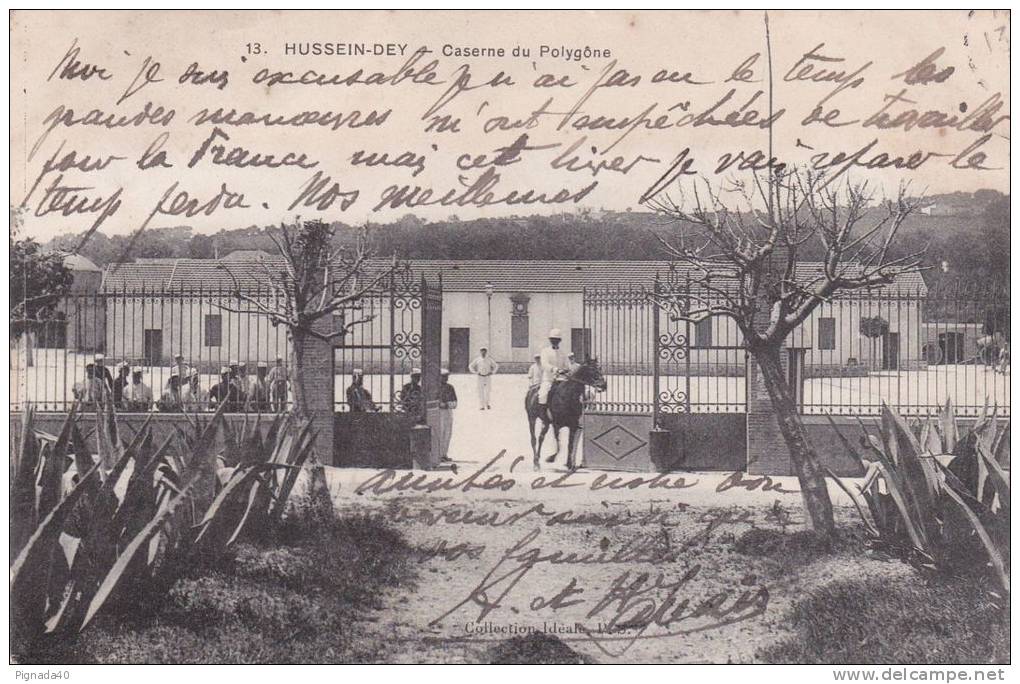 13. HUSSEIN-DEY - Caserne du Polygône
13
Moi je suis excusable peu n'ai pas eu le temps les
grandes manœuvres m'ont empêchées de travailler
pour la France mais cet hiver je vais repaser le
temps perdu. Nos meilleures
amitiés et notre bon
souvenir ainsi que
vos familles
A. et
Collection Idéale, P. S.
Pignada40
www.delcampe.net